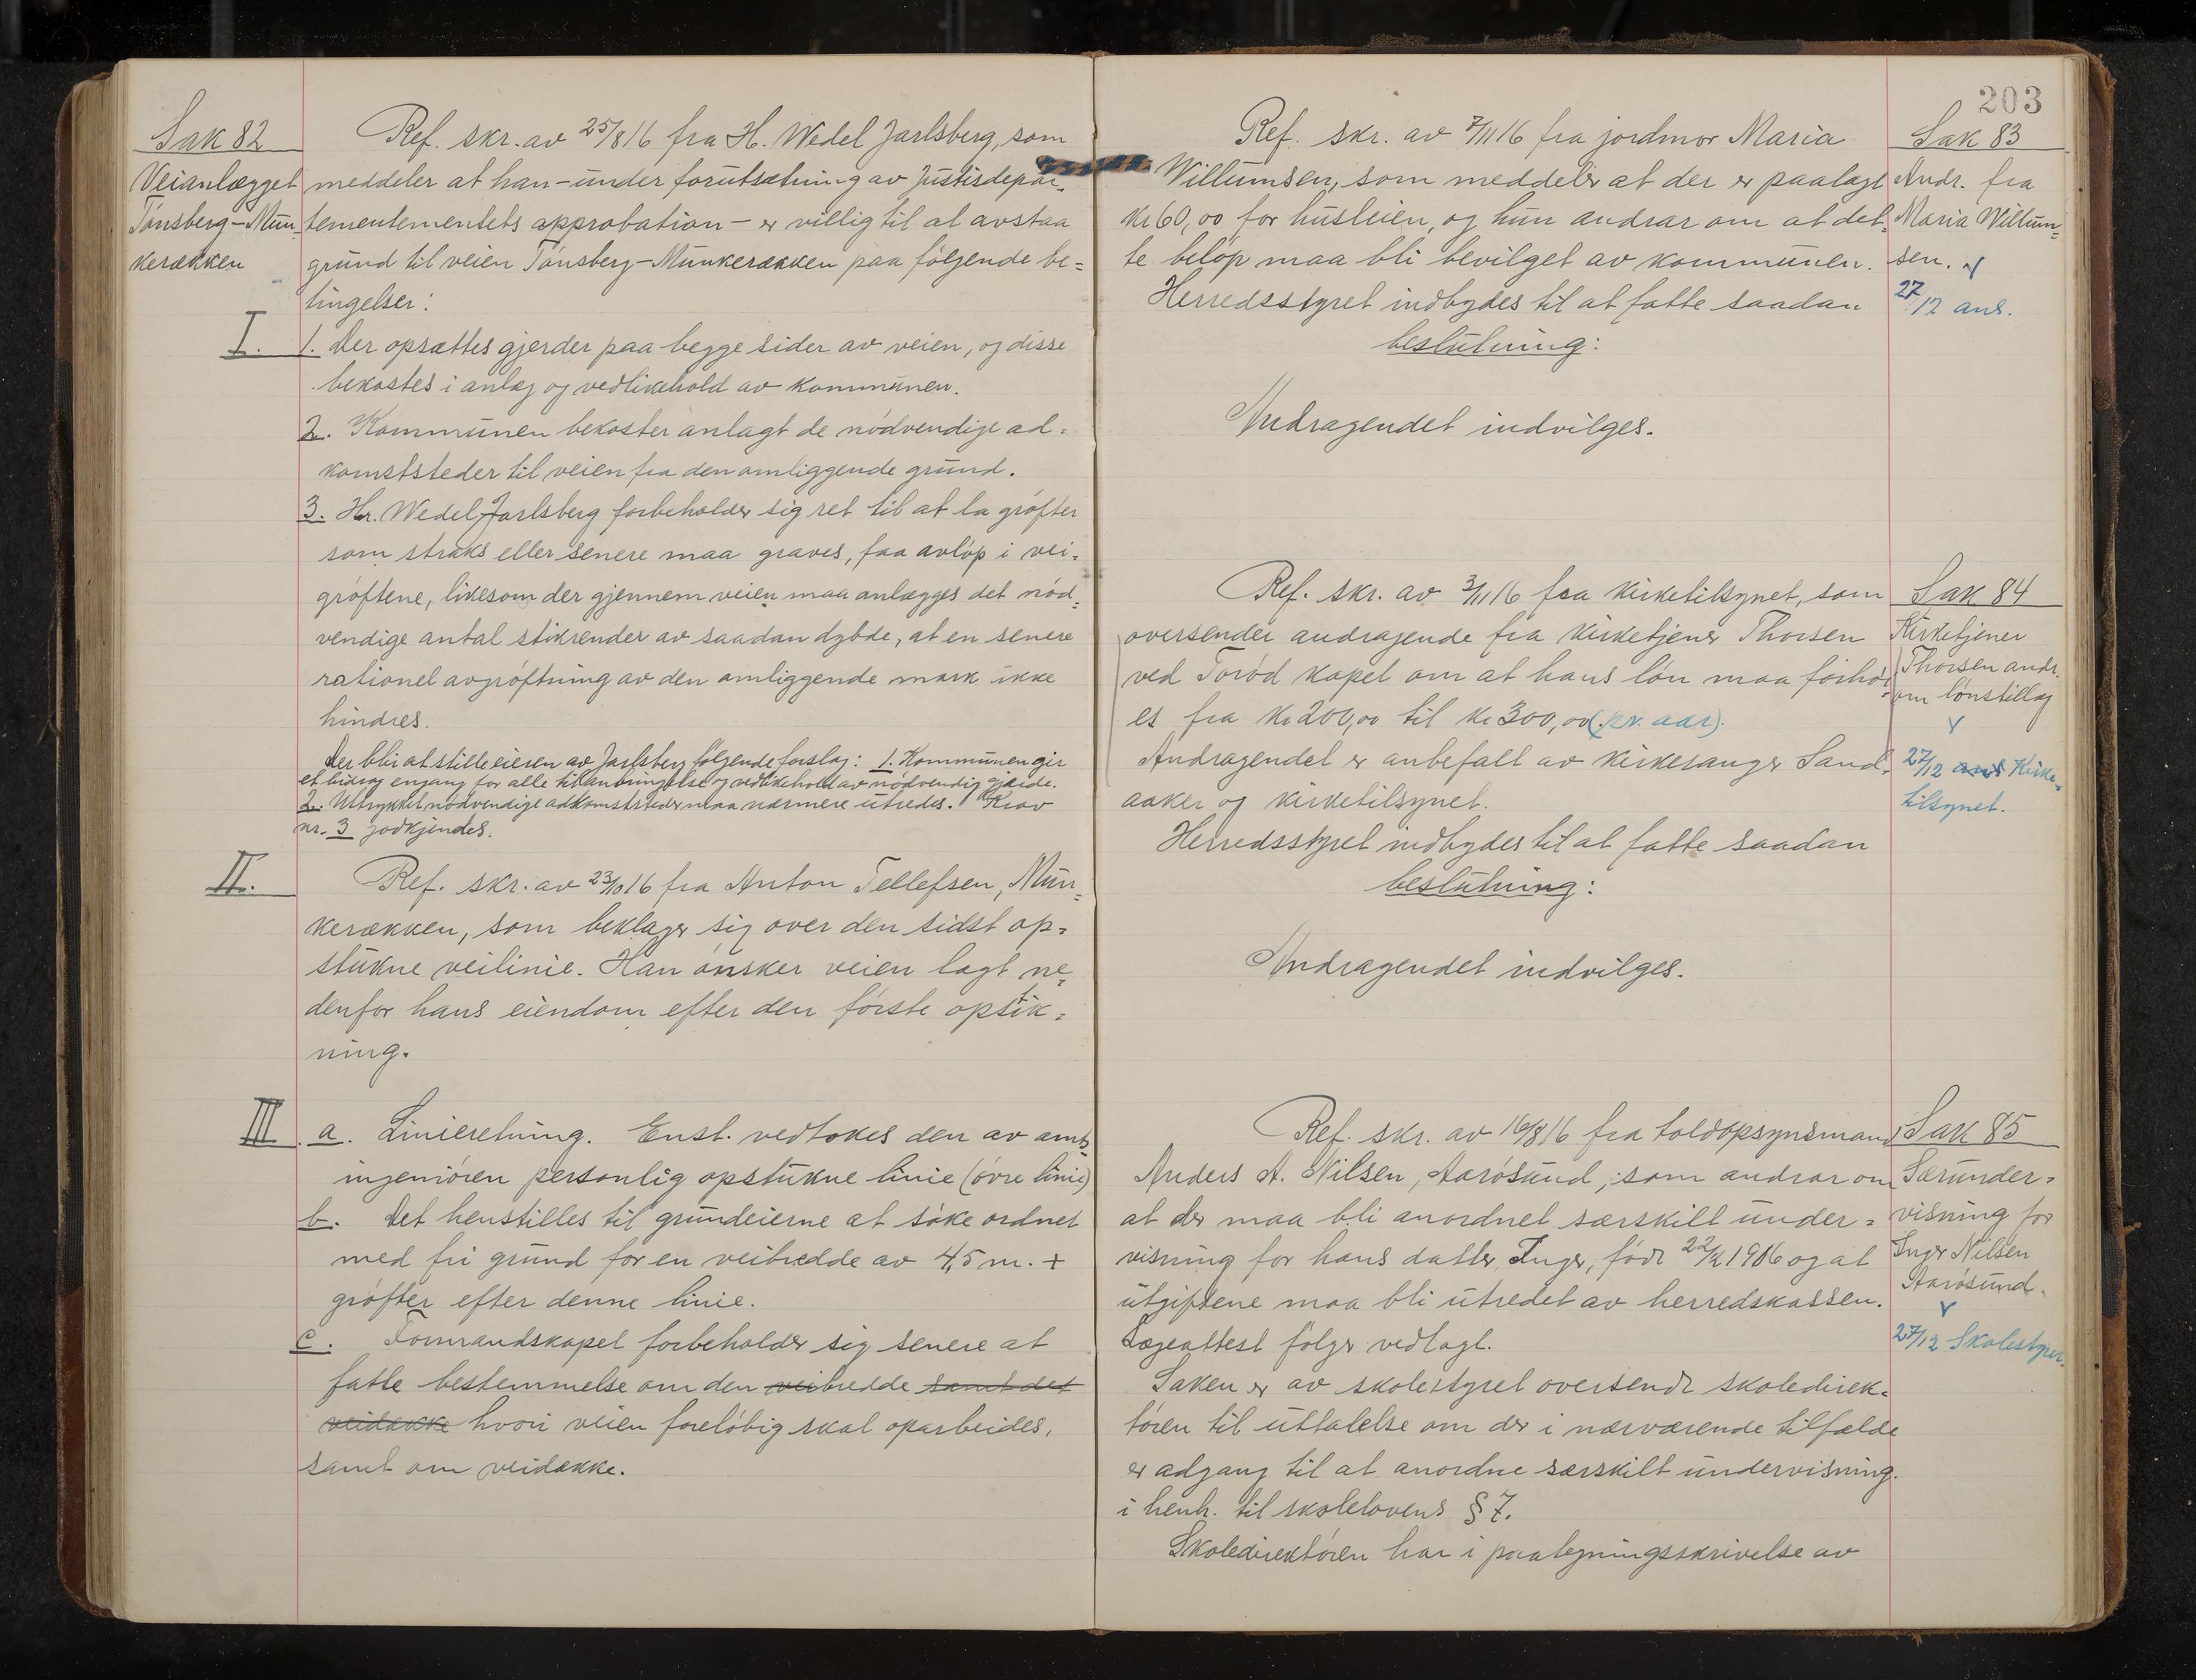 Sak 82
Veianlægget
Tønsberg-Mun-
kerækken
Ref. skr. av 25/8 16 fra H. Wedel Jarlsberg, som
meddeler at han - under forutsætning av Justisdepar-
tementementets approbation - er villig til at avstaa
grund til veien Tønsberg-Munkerækken paa følgende be=
tingelser:
I. 1. Der opsættes gjerder paa begge sider av veien, og disse
bekostes i anlæg og vedlikehold av kommunen.
2. Kommunen bekoster anlagt de nødvendige ad=
komststeder til veien fra den omliggende grund.
3. Hr. Wedel Jarlsberg forbeholder sig ret til at la grøfter
som straks eller senere maa graves, faa avløp i vei=
grøftene, likesom der gjennem veien maa anlægges det nød=
vendige antal stikrender av saadan dybde, at en senere
rationel avgrøftning av den omliggende mark ikke
hindres.
Der blir at stille eieren av Jarlsberg følgende forslag: 1. Kommunen gir
et bidrag engang for alle til anbringelse og vedlikehold av nødvendig gjærde.
2. Uttrykket nødvendige adkomststeder maa nærmere utredes. Krav
nr. 3 godkjendes.
II. Ref. skr. av 23/10 16 fra Anton Tellefsen, Mun=
kerækken, som beklager sig over den sidst op=
stukne veilinie. Han ønsker veien lagt ne=
denfor hans eiendom efter den første opstik=
ning.
III a. Linieretning. Enst. vedtokes den av amts
ingeniøren personlig opstukne linie (øvre linie)
b. Det henstilles til grundeierne at søke ordnet
med fri grund for en veibredde av 4,5 m. +
grøfter efter denne linie.
c. Formandskapet forbeholder sig senere at
fatte bestemmelse om den veibredde samt det
veidække hvori veien foreløbig skal oparbeides,
samt om veidække.
203
Ref. skr. av 7/11 16 fra jordmor Maria
Willumsen, som meddeler at der er paalagt
kr 60,00 for husleien, og hun andrar om at det=
te beløp maa bli bevilget av kommunen.
Herredsstyret indbydes til at fatte saadan
beslutning:
Andragendet indvilges.
Sak 83
Andr. fra
Maria Willum=
sen.
27/12 ans.
Ref. skr. av 3/11 16 fra kirketilsynet, som
oversender andragende fra kirketjener Thorsen
ved Torød kapel om at hans løn maa forhøi=
es fra kr 200,00 til kr 300,00 (pr. aar).
Andragendet er anbefalt av kirkesanger Sand=
aaker og kirketilsynet.
Herredsstyret indbydes til at fatte saadan
beslutning:
Andragendet indvilges.
Sak 84
Kirketjener
Thorsen andr.
om lønstillæg
27/12 ans Kirke=
tilsynet.
Ref. skr. av 16/8 16 fra toldopsynsmand
Anders A. Nilsen, Aarøsund, som andrar om
at der maa bli anordnet særskilt under=
visning for hans datter Inger, født 1906 og at
utgiftene maa bli utredet av herredskassen.
Lægeattest følger vedlagt.
Saken er av skolestyret oversendt skoledirek=
tøren til uttalelse om der i nærværende tilfælde
er adgang til at anordne særskilt undervisning
i henh. til skolelovens § 7.
Skoledirektøren har i paategningsskrivelse av
Sak 85
Særunder=
visning for
Inger Nilsen
Aarøsund.
27/12 Skolestyret.